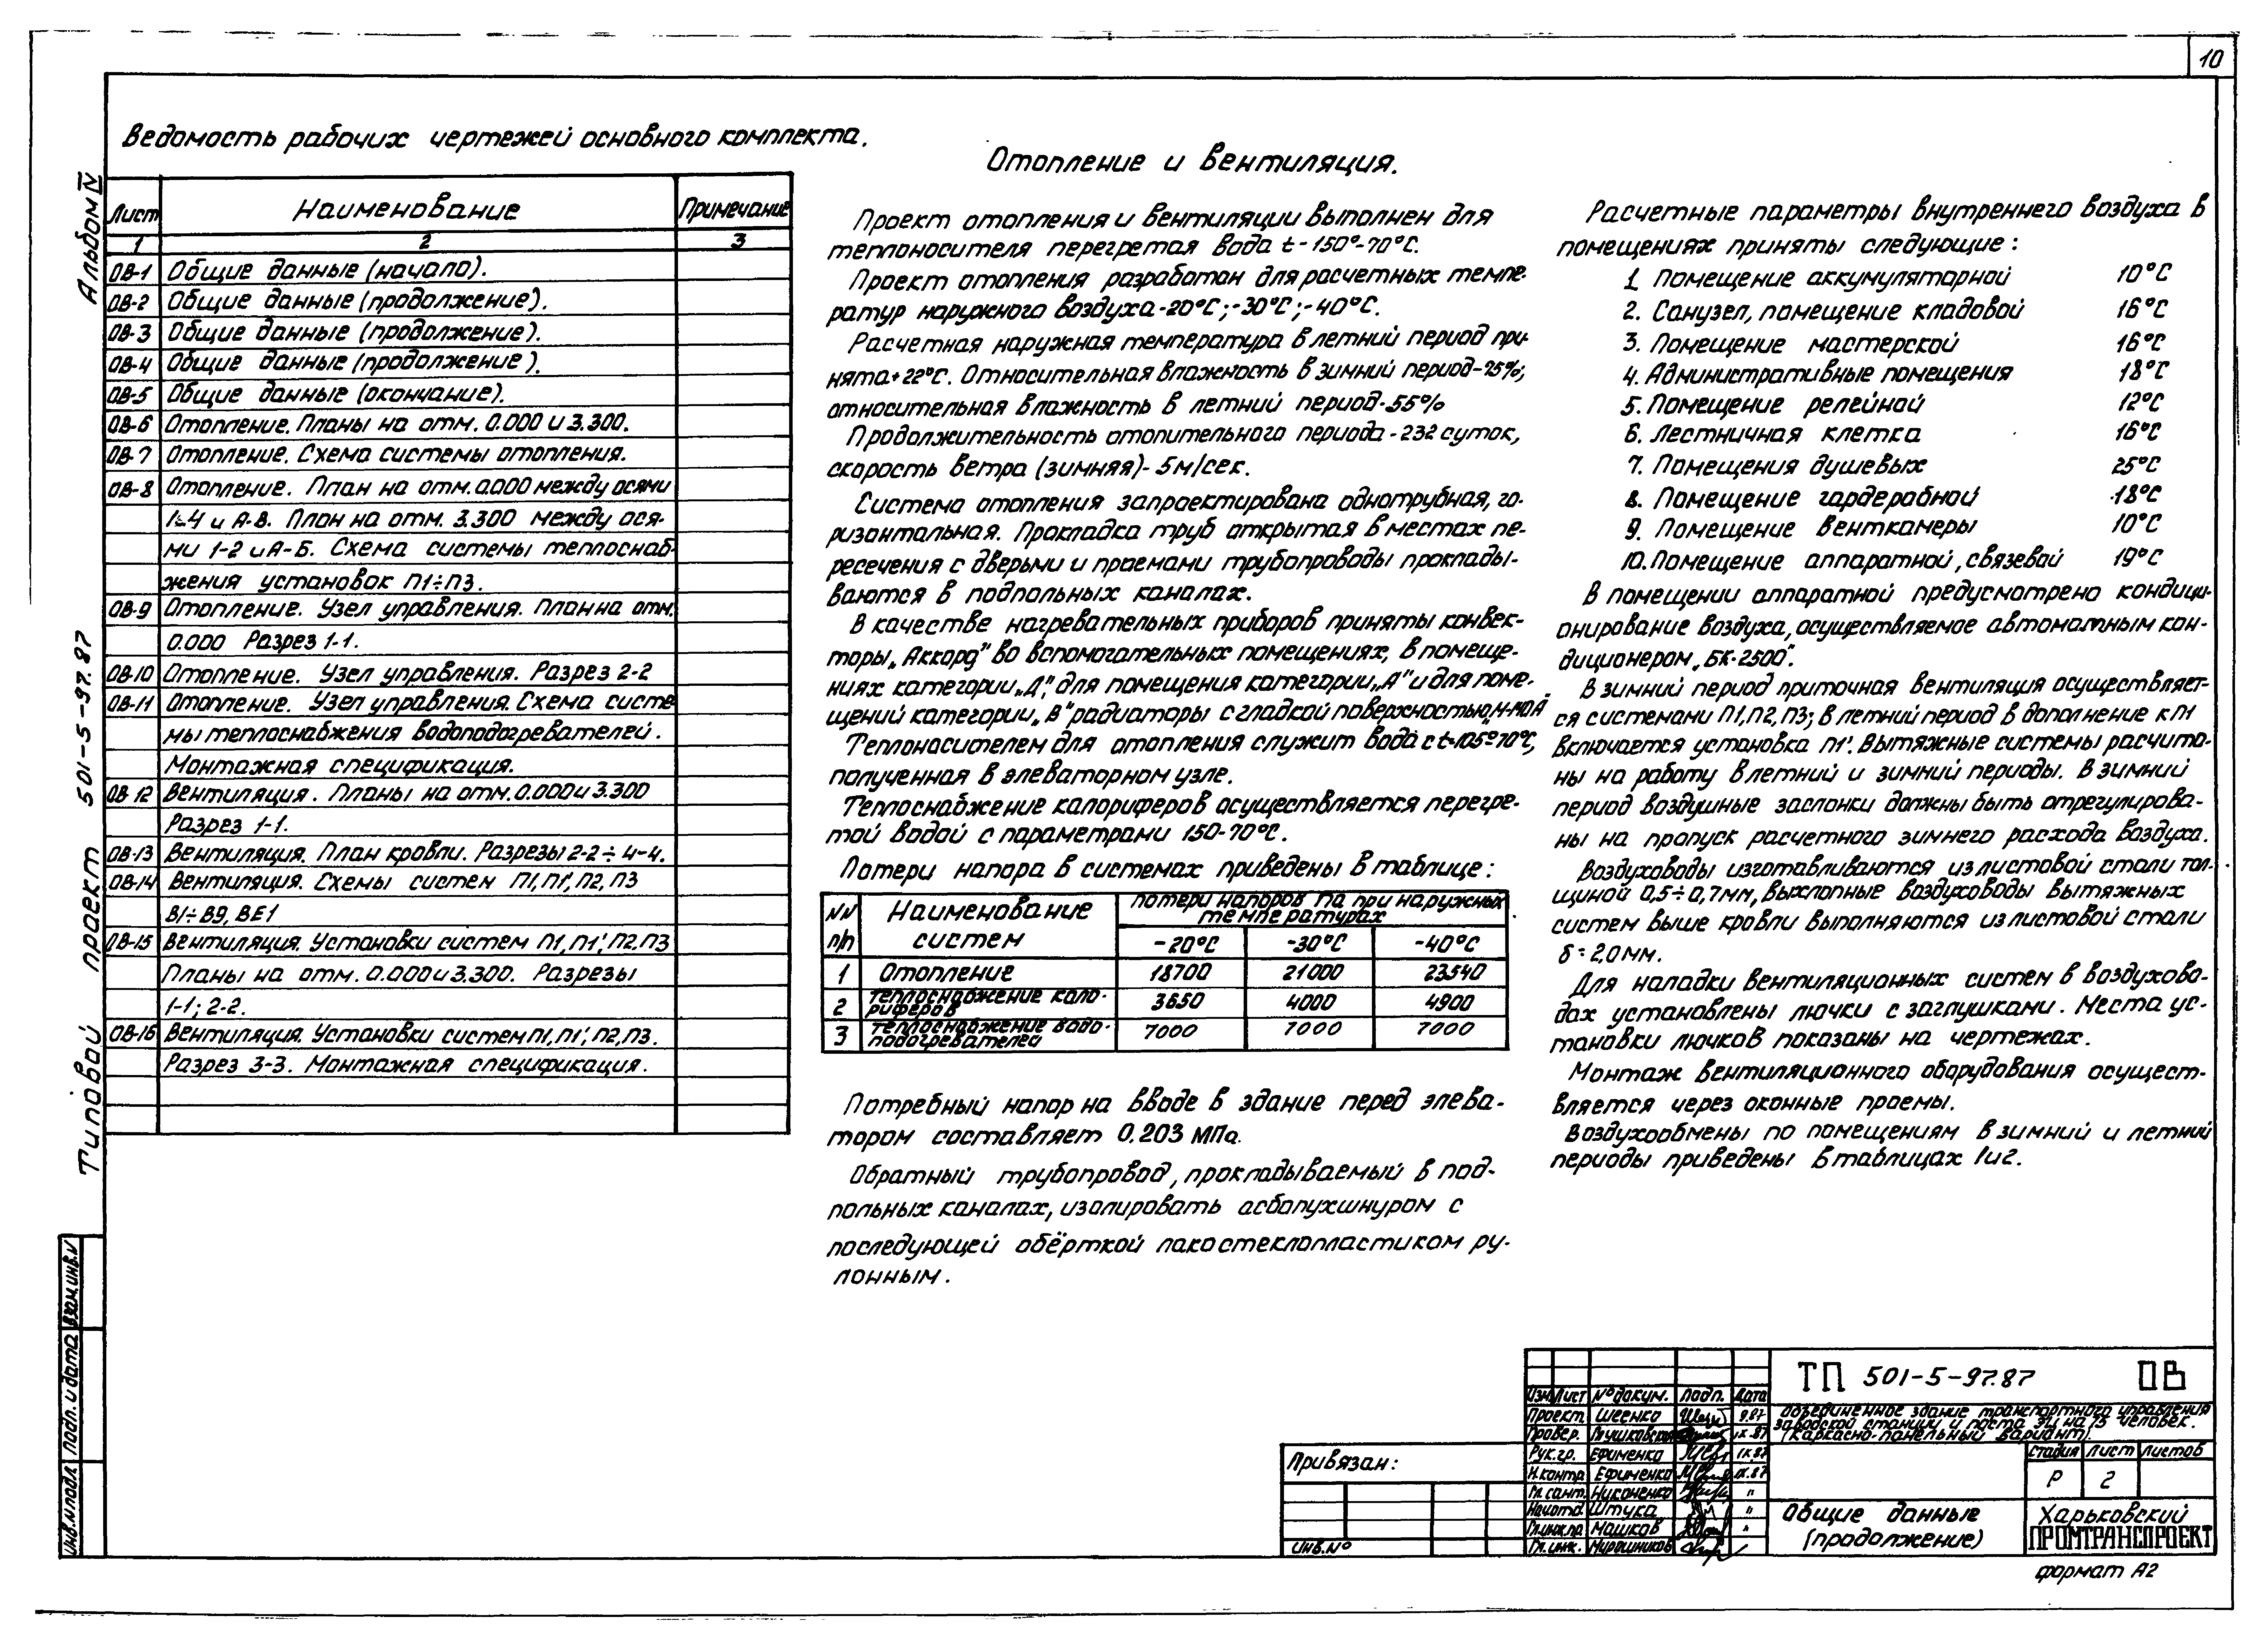 10
Ведомость рабочих чертежей основного комплекта.
Лист Наименование Примечание
1 2 3
ОВ-1 Общие данные (начало).
ОВ-2 Общие данные (продолжение).
ОВ-3 Общие данные (продолжение).
ОВ-4 Общие данные (продолжение).
ОВ-5 Общие данные (окончание).
ОВ-6 Отопление. Планы на отм. 0.000 и 3.300.
ОВ-7 Отопление. Схема системы отопления.
ОВ-8 Отопление. План на отм. 0.000 между осями
1-4 и А-В. План на отм. 3.300 между ося-
ми 1-2 и А-Б. Схема системы теплоснаб-
жения установок П1÷П3.
ОВ-9 Отопление. Узел управления. План на отм.
0.000 Разрез 1-1.
ОВ-10 Отопление. Узел управления. Разрез 2-2
ОВ-11 Отопление. Узел управления. Схема систе
мы теплоснабжения водоподогревателей.
Монтажная спецификация.
ОВ 12 Вентиляция. Планы на отм. 0.000 и 3.300
Разрез 1-1.
ОВ-13 Вентиляция. План кровли. Разрезы 2-2÷4-4.
ОВ-14 Вентиляция. Схемы систем П1, П1', П2, П3
В1÷В9, ВЕ1
ОВ-15 Вентиляция. Установки систем П1, П1', П2, П3
Планы на отм. 0.000 и 3.300. Разрезы
1-1; 2-2.
ОВ-16 Вентиляция. Установки систем П1, П1', П2, П3.
Разрез 3-3. Монтажная спецификация.
Отопление и вентиляция.
Проект отопления и вентиляции выполнен для
теплоносителя перегретая вода t-150°-70°С.
Проект отопления разработан для расчетных темпе-
ратур наружного воздуха -20°С; -30°С; -40°С.
Расчетная наружная температура в летний период при-
нята +22°С. Относительная влажность в зимний период-75%;
относительная влажность в летний период-55%
Продолжительность отопительного периода - 232 суток,
скорость ветра (зимняя)- 5м/сек.
Система отопления запроектирована однотрубная, го-
ризонтальная. Прокладка труб открытая в местах пе-
ресечения с дверьми и проемами трубопроводы проклады-
ваются в подпольных каналах.
В качестве нагревательных приборов приняты конвек-
торы „Аккорд" во вспомогательных помещениях, в помеще-
ниях категории „Д", для помещения категории „А" и для поме-
щений категории „В" радиаторы с гладкой поверхностью „М-140А"
Теплоносителем для отопления служит вода с t=105°-70°С,
полученная в элеваторном узле.
Теплоснабжение калориферов осуществляется перегре-
той водой с параметрами 150-70°С.
Потери напора в системах приведены в таблице:
NN п/п Наименование систем потери напоров Па при наружных температурах
-20°С -30°С -40°С
1 Отопление 18700 21000 23540
2 теплоснабжение кало-
риферов 3650 4000 4900
3 теплоснабжение водо-
подогревателей 7000 7000 7000
Потребный напор на вводе в здание перед элева-
тором составляет 0.203 МПа.
Обратный трубопровод, прокладываемый в под-
польных каналах, изолировать асбопухшнуром с
последующей обёрткой лакостеклопластиком ру-
лонным.
Расчетные параметры внутреннего воздуха в
помещениях приняты следующие:
1 Помещение аккумуляторной 10°С
2. Санузел, помещение кладовой 16°С
3. Помещение мастерской 16°С
4. Административные помещения 18°С
5. Помещение релейной 12°С
6. Лестничная клетка 16°С
7. Помещения душевых 25°С
8. Помещение гардеробной 18°С
9. Помещение венткамеры 10°С
10. Помещение аппаратной, связевой 19°С
В помещении аппаратной предусмотрено кондици-
онирование воздуха, осуществляемое автоматным кон-
диционером „БК-2500".
В зимний период приточная вентиляция осуществляет-
ся системами П1, П2, П3; в летний период в дополнение к П1
включается установка П1'. Вытяжные системы расчита-
ны на работу в летний и зимний периоды. В зимний
период воздушные заслонки должны быть отрегулирова-
ны на пропуск расчетного зимнего расхода воздуха.
Воздуховоды изготавливаются из листовой стали тол-
щиной 0,5÷0,7мм, выхлопные воздуховоды вытяжных
систем выше кровли выполняются из листовой стали
δ=2,0мм.
Для наладки вентиляционных систем в воздухово-
дах установлены лючки с заглушками. Места ус-
тановки лючков показаны на чертежах.
Монтаж вентиляционного оборудования осущест-
вляется через оконные проемы.
Воздухообмены по помещениям в зимний и летний
периоды приведены в таблицах 1 и 2.
Альбом IV
Типовой проект 501-5-97.87
Взам.инв.N
Подп. и дата
Инв.Nподл.
Привязан:
Инв.N°
Изм Лист N°докум. Подп. Дата
Проект. Шеенко 9.87
Провер. IX.87
Рук.гр. Ефименко IX.87
Н.контр. Ефименко IX.87
Гл.сант. Никоненко "
Нач.отд. Штука "
Машков "
Гл.инж. Мирошников
ТП 501-5-97.87 ОВ
Объединенное здание транспортного управления
заводской станции и поста ЭЦ на 75 человек.
(Каркасно-панельный вариант).
Стадия Лист Листов
Р 2
Общие данные
(продолжение)
Харьковский
ПРОМТРАНСПРОЕКТ
формат А2